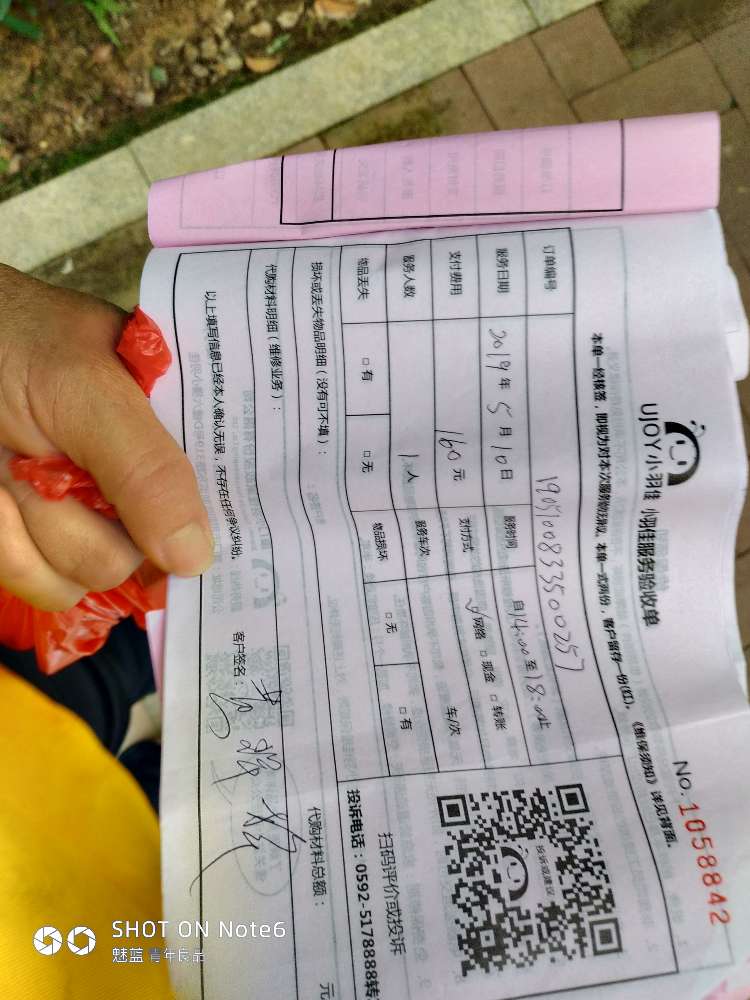 UJOY小羽佳 小羽佳服务验收单
No. 1058842
本单一经核签，即视为对本次服务勘误确认。本单一式两份，客户留存一份(红)，《维保须知》详见背面。
订单编号 1905100833500257
服务日期 2019年5月10日 服务时间 自14:00至18:00止
支付费用 160元 支付方式 ☑网络 □现金 □转账
服务人数 1人 服务车次 车/次 天
物品丢失 □有 □无 物品损坏 □无 □有
损坏或丢失物品明细（没有可不填）：
代购材料明细（维修业务）：
代购材料总额： 元
以上填写信息已经本人确认无误，不存在任何争议纠纷。
客户签名：
投诉或建议
扫码评价或投诉
投诉电话：0592-5178888转
SHOT ON Note6
魅蓝 青年良品